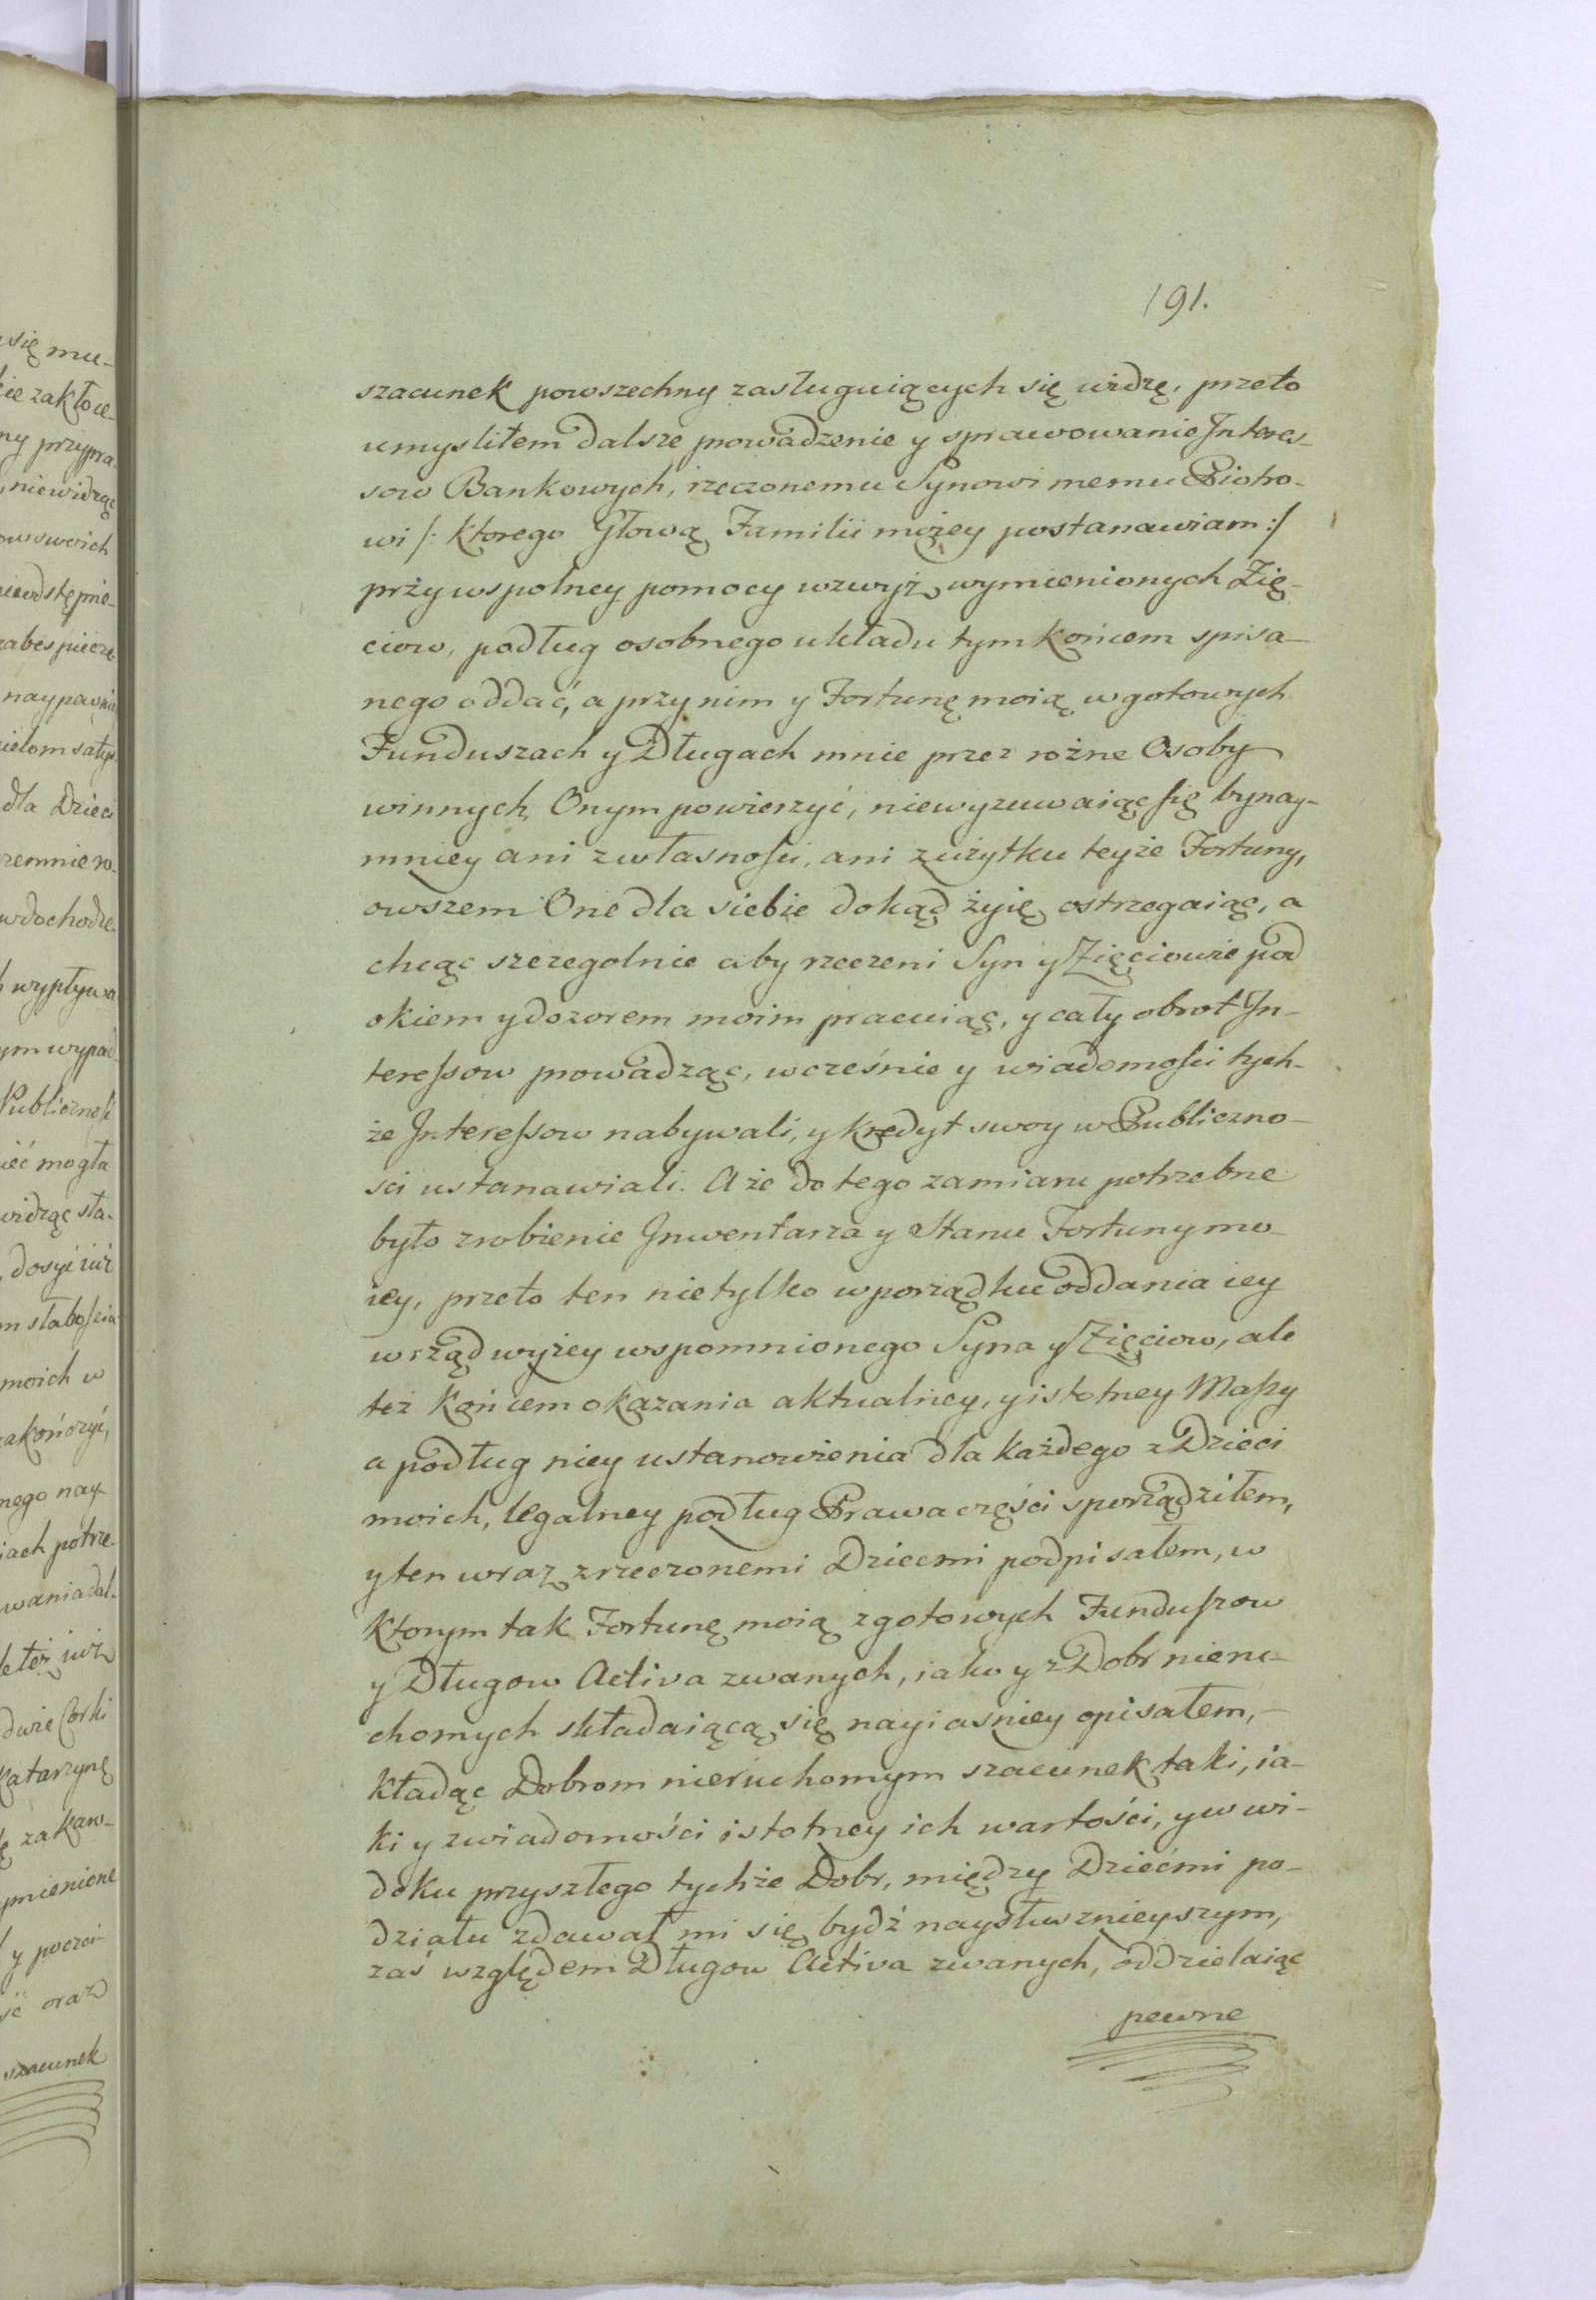 191.
szacunek powszechny zasługuiących się widzę, przeto
umysliłem dalsze prowadzenie y sprawowanie Interes-
sow Bankowych, rzeczonemu Synowi memu Piotro-
wi /: ktorego Głową Familii moiey postanawiam :/
przy wspolney pomocy wzwyż wymienionych Zię-
ciow, podług osobnego układu tym końcem spisa-
nego oddać, a przy nim y Fortunę moią w gotowych
Funduszach y Długach mnie przez rożne Osoby
winnych, Onym powierzyć, niewyzuwaiąc się bynay-
mniey ani z własności, ani z użytku teyże Fortuny,
owszem One dla siebie dokąd żyię ostrzegaiąc, a
chcąc szczegolnie aby rzeczeni Syn y Zięciowie pod
okiem y dozorem moim pracuiąc, y cały obrot In-
teressow prowadząc, wcześnie y wiadomości tych-
że Interessow nabywali, y kredyt swoy w Publiczno-
sci ustanawiali. A że do tego zamiaru potrzebne
było zrobienie Inwentarza y Stanu Fortuny mo-
iey, przeto ten nie tylko w porządku oddania iey
w rząd wyżey wspomnionego Syna y Zięciow, ale
też końcem okazania aktualney, y istotney Massy
a podług niey ustanowienia dla każdego z Dzieci
moich, legalney podług Prawa części sporządziłem,
y ten wraz z rzeczonemi Dziecmi podpisałem, w
ktorym tak Fortunę moią z gotowych Funduszow
y Długow Activa zwanych, iako y z Dobr nieru-
chomych składaiącą się nayiasniey opisałem, –
kładąc Dobrom nieruchomym szacunek taki, ia-
ki y z wiadomości istotney ich wartości, y w wi-
doku przyszłego tychże Dobr, między Dziećmi po-
działu zdawał mi się bydź naysłusznieyszym,
zaś względem Długow Activa zwanych, oddzielaiąc
pewne